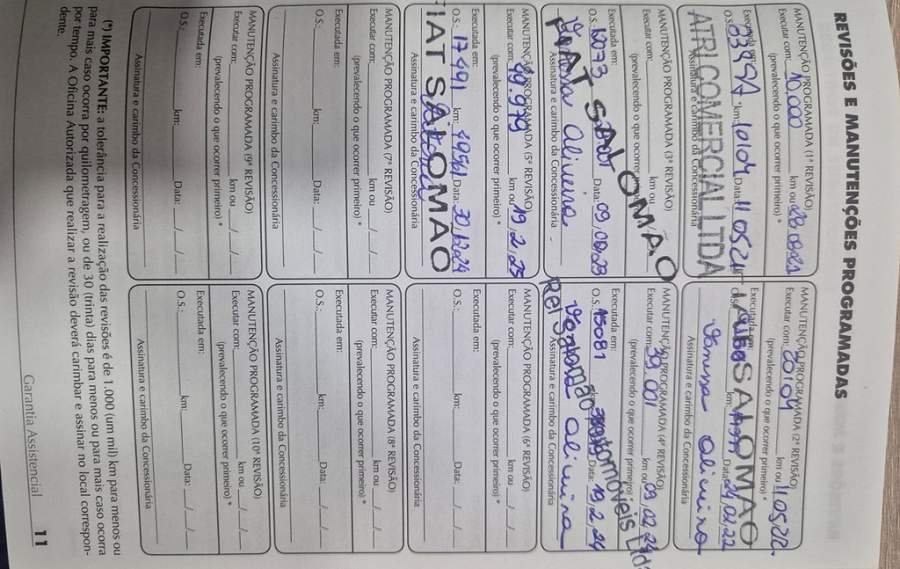 REVISÕES E MANUTENÇÕES PROGRAMADAS
MANUTENÇÃO PROGRAMADA (1ª REVISÃO)
Executar com: 10.000 km ou
(prevalecendo o que ocorrer primeiro) *
Executada em:
O.S.: km: 10104 Data: 11 05 21
ATRI COMERCIAL LTDA
Assinatura e carimbo da Concessionária
MANUTENÇÃO PROGRAMADA (2ª REVISÃO)
Executar com: 20104 km ou 11 05 22
(prevalecendo o que ocorrer primeiro) *
Executada em:
O.S.: km: Data:
FIAT SALOMAO
Vanussa Oliveira
Assinatura e carimbo da Concessionária
MANUTENÇÃO PROGRAMADA (3ª REVISÃO)
Executar com: km ou
(prevalecendo o que ocorrer primeiro) *
Executada em:
O.S.: Data: 09/02/23
FIAT SALOMAO
Vanussa Oliveira
Assinatura e carimbo da Concessionária
MANUTENÇÃO PROGRAMADA (4ª REVISÃO)
Executar com: 39.001 km ou 09 02 24
(prevalecendo o que ocorrer primeiro) *
Executada em:
O.S.: 15081 Data: 19, 2, 24
Vanussa Oliveira
Assinatura e carimbo da Concessionária
MANUTENÇÃO PROGRAMADA (5ª REVISÃO)
Executar com: 49.979 km ou 19, 2, 25
(prevalecendo o que ocorrer primeiro) *
Executada em:
O.S.: 17491 km: 49961 Data: 30, 12, 24
FIAT SALOMAO
Assinatura e carimbo da Concessionária
MANUTENÇÃO PROGRAMADA (6ª REVISÃO)
Executar com: km ou / /
(prevalecendo o que ocorrer primeiro) *
Executada em:
O.S.: km: Data: / /
Assinatura e carimbo da Concessionária
MANUTENÇÃO PROGRAMADA (7ª REVISÃO)
Executar com: km ou / /
(prevalecendo o que ocorrer primeiro) *
Executada em:
O.S.: km: Data: / /
Assinatura e carimbo da Concessionária
MANUTENÇÃO PROGRAMADA (8ª REVISÃO)
Executar com: km ou / /
(prevalecendo o que ocorrer primeiro) *
Executada em:
O.S.: km: Data: / /
Assinatura e carimbo da Concessionária
MANUTENÇÃO PROGRAMADA (9ª REVISÃO)
Executar com: km ou / /
(prevalecendo o que ocorrer primeiro) *
Executada em:
O.S.: km: Data: / /
Assinatura e carimbo da Concessionária
MANUTENÇÃO PROGRAMADA (10ª REVISÃO)
Executar com: km ou / /
(prevalecendo o que ocorrer primeiro) *
Executada em:
O.S.: km: Data: / /
Assinatura e carimbo da Concessionária
(*) IMPORTANTE: a tolerância para a realização das revisões é de 1.000 (um mil) km para menos ou
para mais caso ocorra por quilometragem, ou de 30 (trinta) dias para menos ou para mais caso ocorra
por tempo. A Oficina Autorizada que realizar a revisão deverá carimbar e assinar no local correspon-
dente.
Garantia Assistencial 11